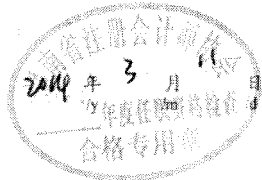 南省注册会计师协会
2014 年 3 月 11 日
/y /m /d
年度任职资格检查
合格专用章